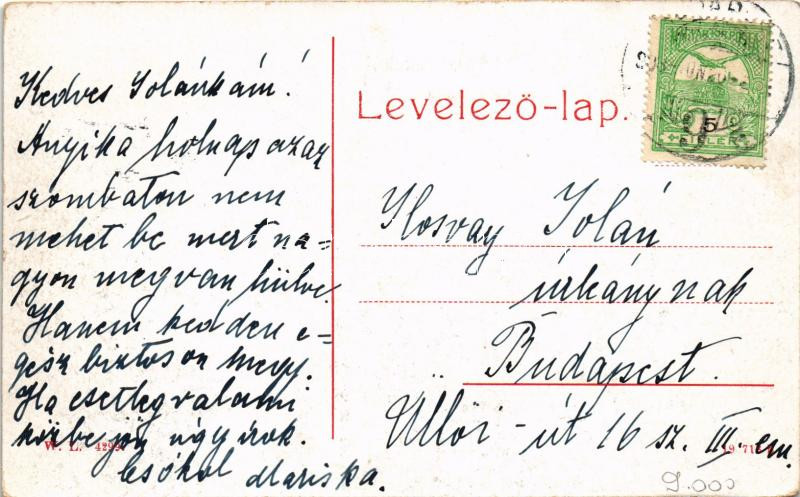 Kedves Jolánkám!
Anyika holnap azaz
szombaton nem
mehet be mert na=
gyon megvan hülve.
Hanem kedden e=
gész biztosan megy.
Ha esetleg valami
közbe jön úgy írok.
Csókol Mariska.
W. L. 429
Levelező-lap.
5
FILLÉR
Ilosvay Jolán
úrhánynak
Budapest.
Üllői-út 16 sz. III. em.
9.000